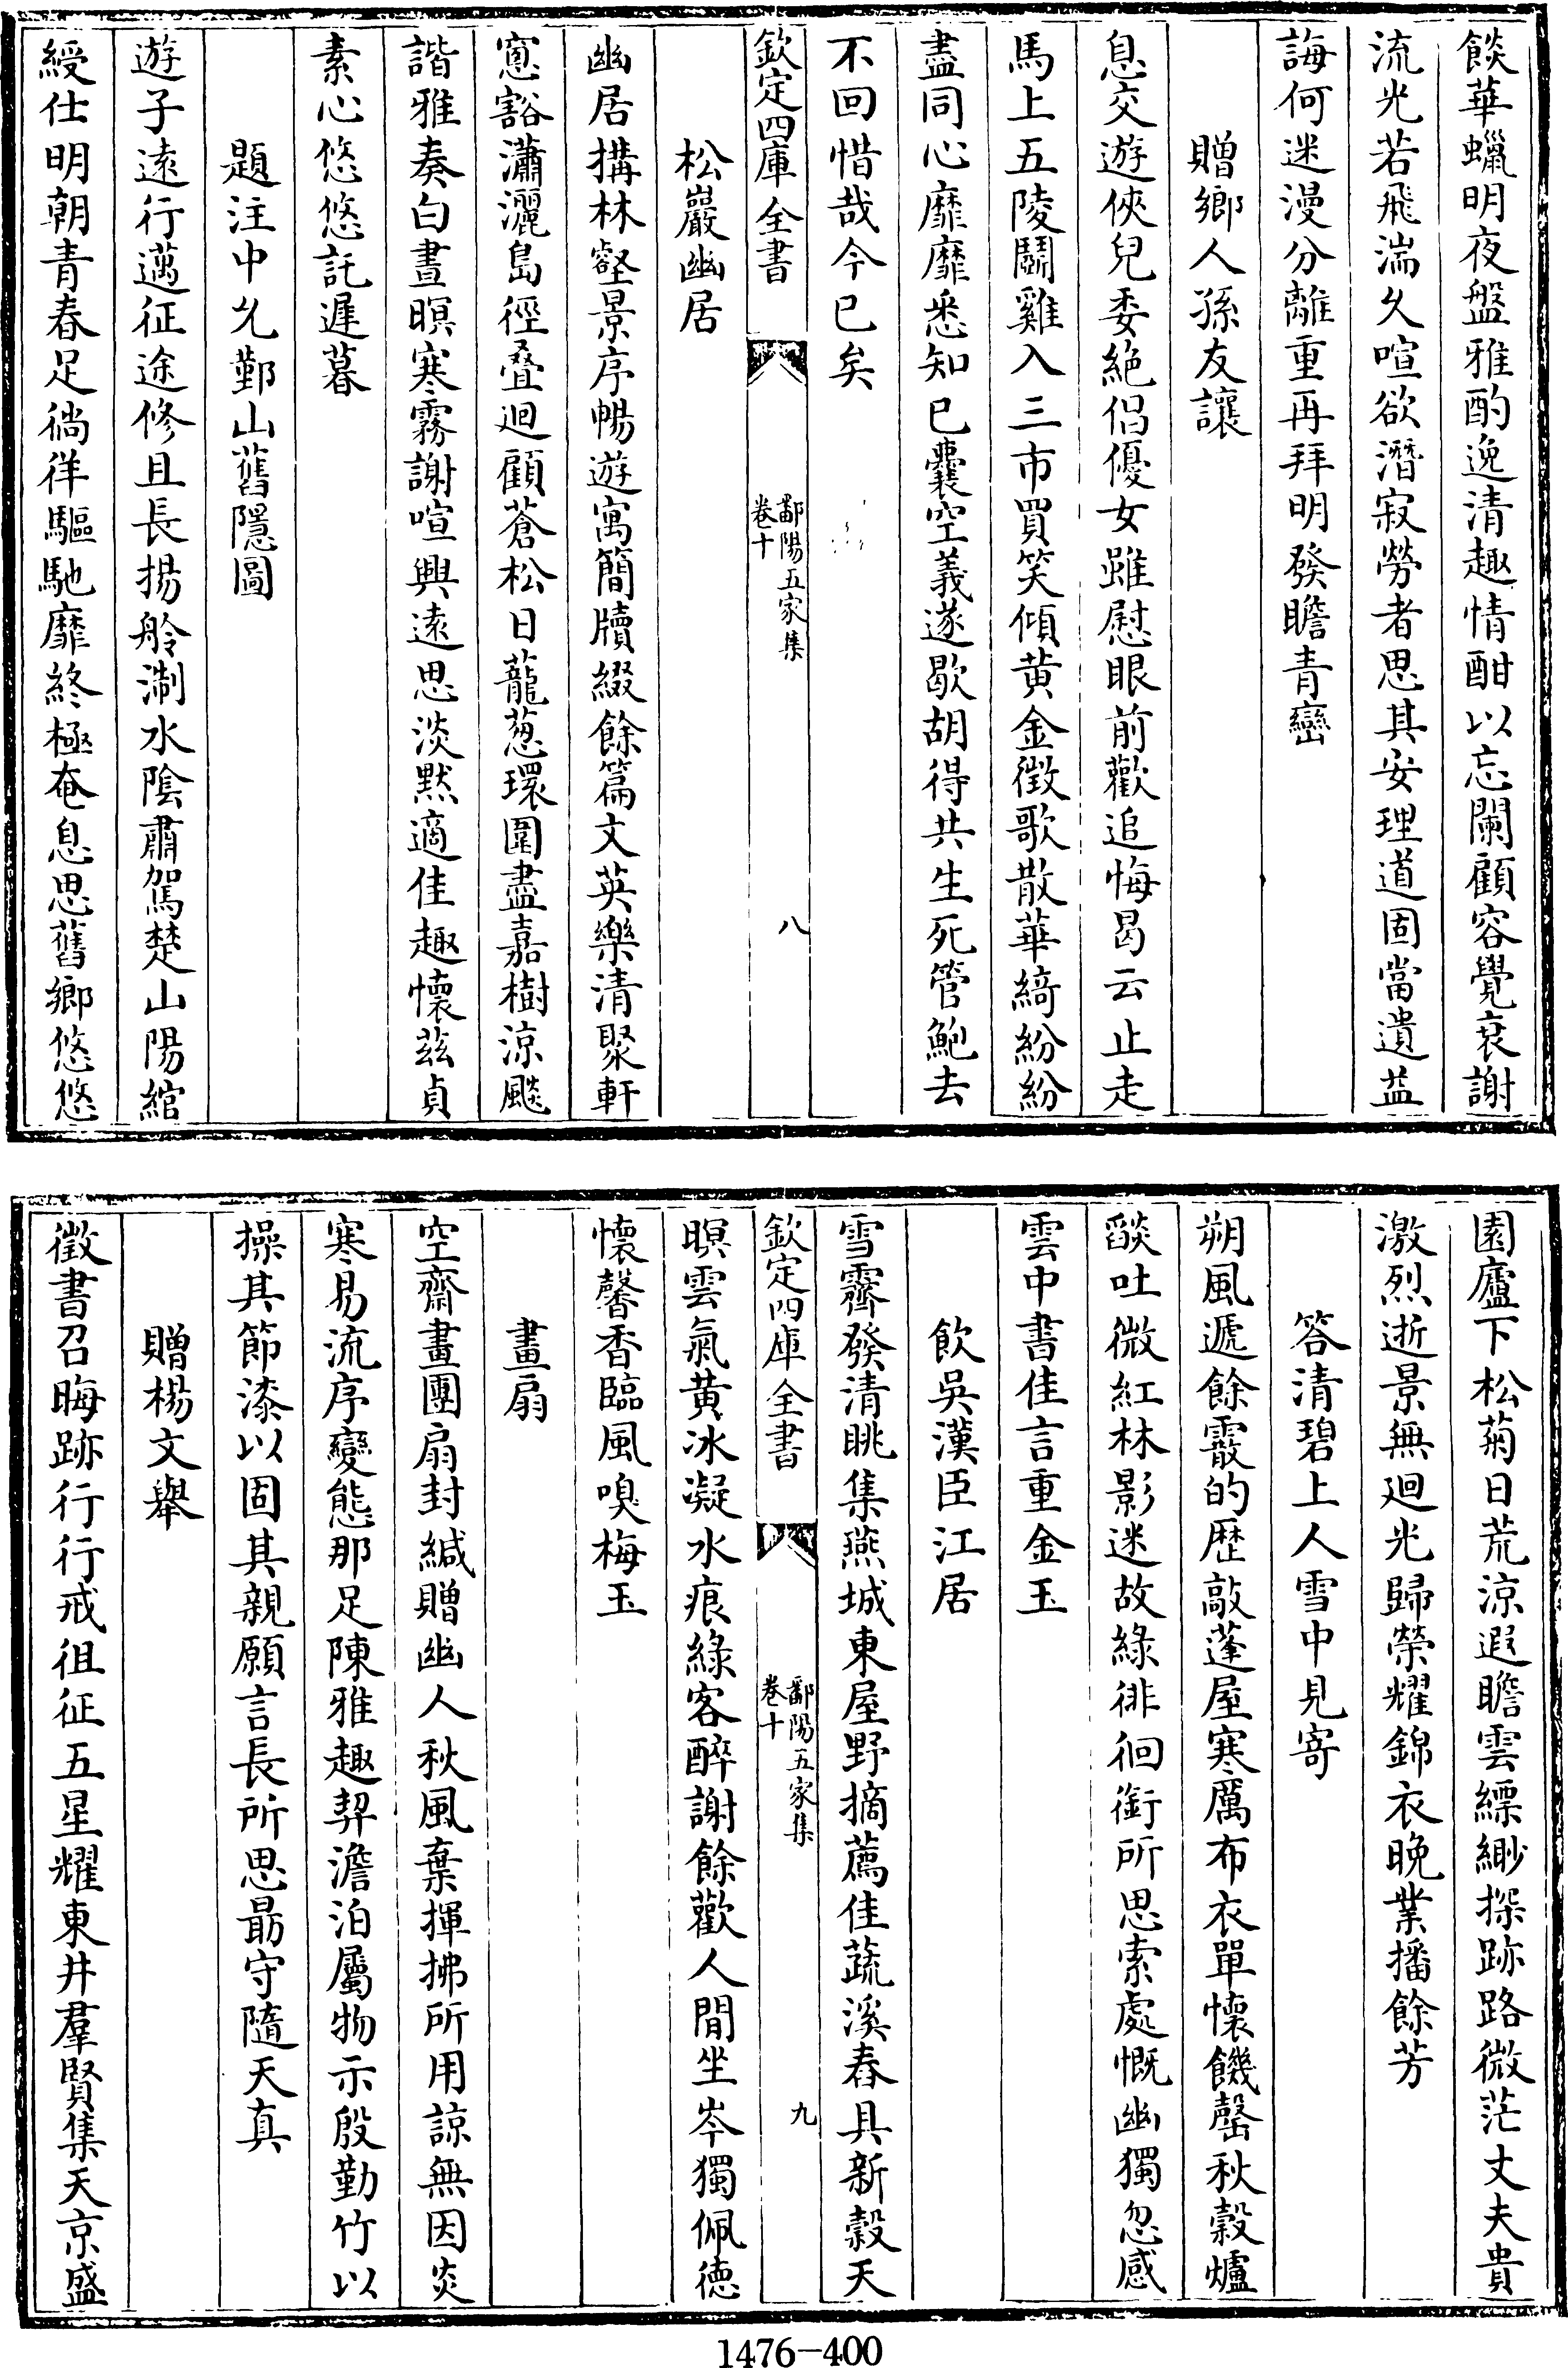 餤華蠟明夜盤雅酌逸清趣情酣以忘闌顧容覺衰謝
流光若飛湍久喧欲潛寂勞者思其安理道固當遺益
誨何迷漫分離重再拜明發瞻青巒
贈鄉人孫友讓
息交遊俠兒委絶倡優女雖慰眼前歡追悔曷云止走
馬上五陵鬭雞入三市買笑傾黄金徴歌散華綺紛紛
盡同心靡靡悉知已囊空義遂歇胡得共生死管鮑去
不回惜哉今已矣
欽定四庫全書
鄱陽五家集
卷十
八
松巖幽居
幽居搆林壑景序暢遊寓簡牘綴餘篇文英樂清聚軒
窻豁瀟灑島徑叠迴顧蒼松日蘢葱環圍盡嘉樹涼颷
諧雅奏白晝暝寒霧謝喧興逺思淡黙適佳趣懷兹貞
素心悠悠託遲暮
題注中允鄞山舊隱圖
遊子逺行邁征途修且長揚舲淛水陰肅駕楚山陽綰
綬仕明朝青春足徜徉驅馳靡終極奄息思舊鄉悠悠
園廬下松菊日荒涼遐瞻雲縹緲探跡路微茫丈夫貴
激烈逝景無迴光歸榮耀錦衣晚業播餘芳
答清碧上人雪中見寄
朔風遞餘霰的歴敲蓬屋寒厲布衣單懷饑罄秋穀爐
燄吐微紅林影迷故緑徘徊銜所思索處慨幽獨忽感
雲中書佳言重金玉
飲吳漢臣江居
雪霽發清眺集燕城東屋野摘薦佳蔬溪舂具新榖天
暝雲氣黄冰凝水痕緑客醉謝餘歡人閒坐岑獨佩德
懷馨香臨風嗅梅玉
欽定四庫全書
鄱陽五家集
卷十
九
畫扇
空齋畫團扇封緘贈幽人秋風棄揮拂所用諒無因炎
寒易流序變態那足陳雅趣契澹泊屬物示殷勤竹以
操其節漆以固其親願言長所思勗守隨天真
贈楊文舉
徴書召晦跡行行戒徂征五星耀東井羣賢集天京盛
1476-400